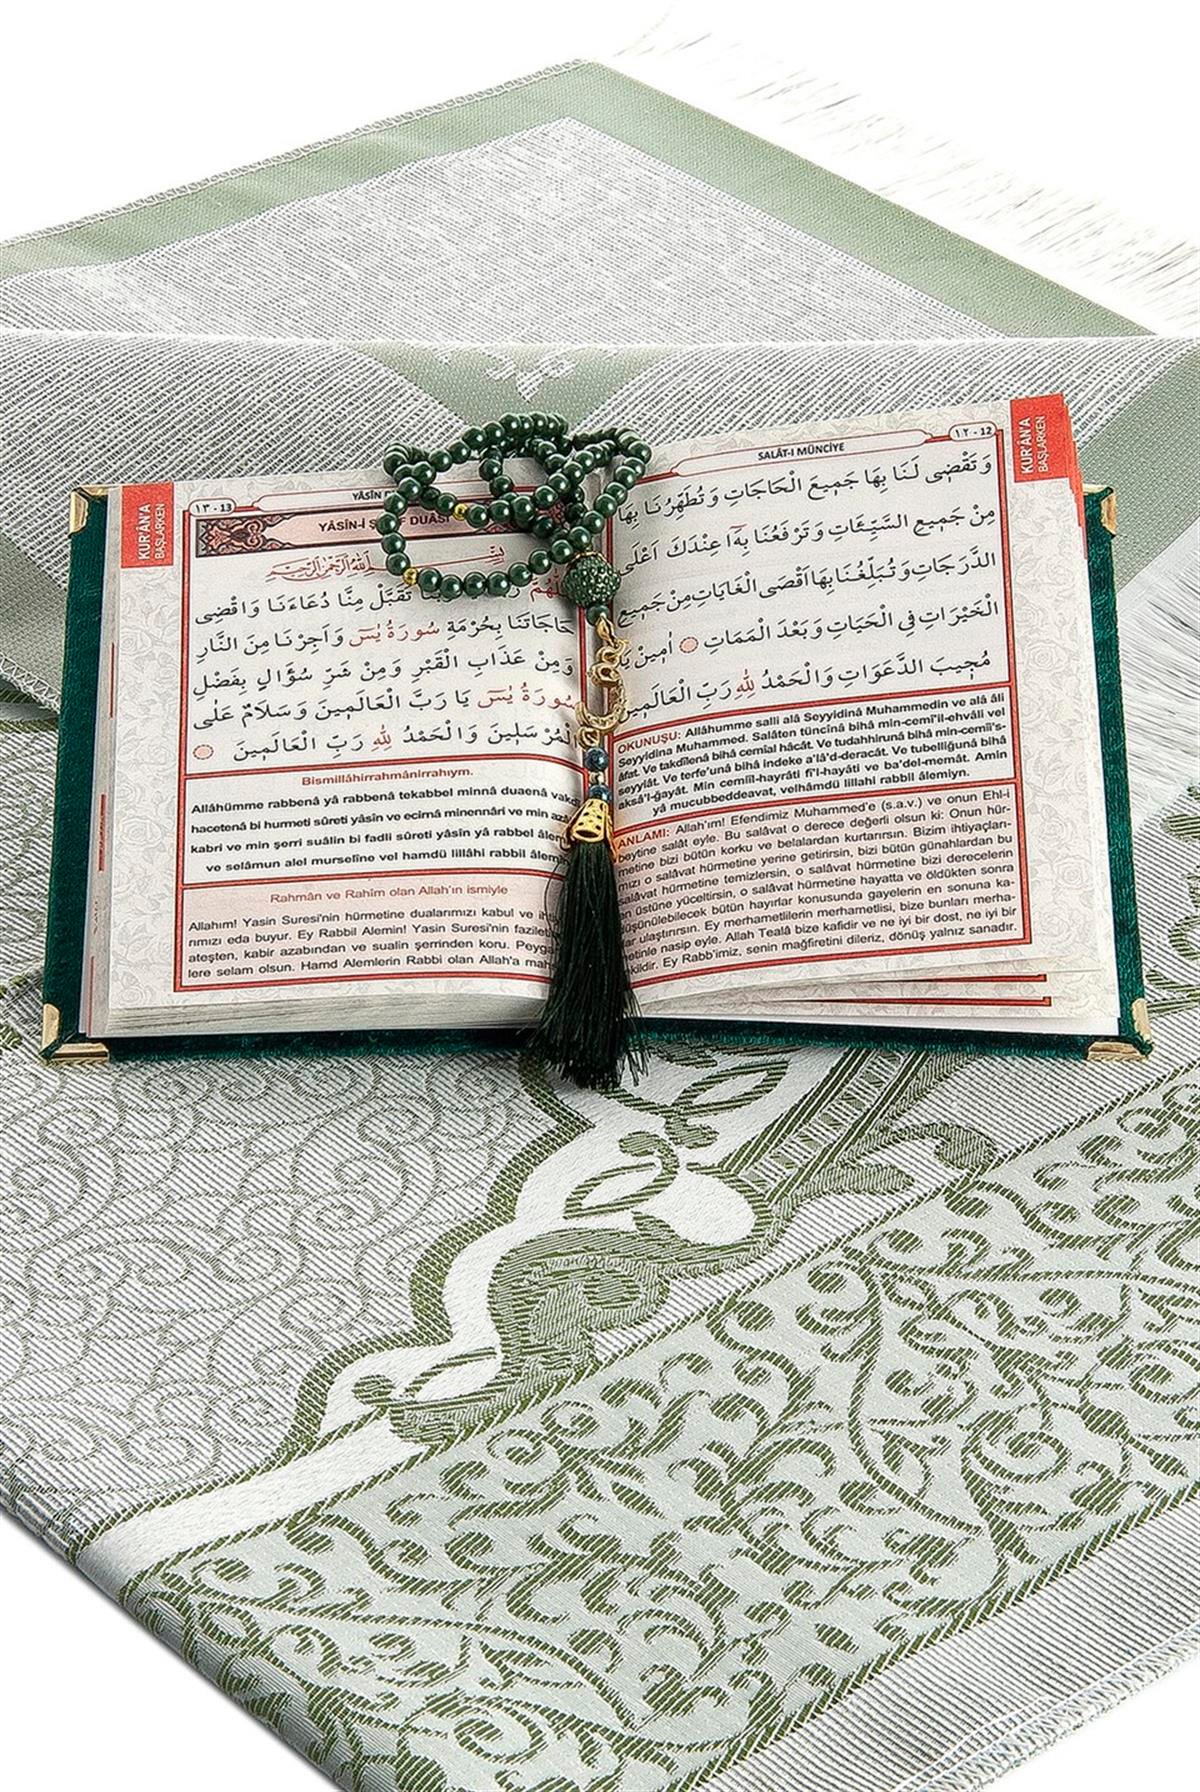 KUR'ÂN'A
BAŞLARKEN
SALÂT-I MÜNCİYE
١٢ - 12
وَتَقْضِى لَنَا بِهَا جَمِيعَ الْحَاجَاتِ وَتُطَهِّرُنَا بِهَا
مِنْ جَمِيعِ السَّيِّئَاتِ وَتَرْفَعُنَا بِهَا عِنْدَكَ اَعْلَى
الدَّرَجَاتِ وَتُبَلِّغُنَا بِهَا اَقْصَى الْغَايَاتِ مِنْ جَمِيعِ
الْخَيْرَاتِ فِى الْحَيَاتِ وَبَعْدَ الْمَمَاتِ اٰمِينَ
مُجِيبَ الدَّعَوَاتِ وَالْحَمْدُ لِلّٰهِ رَبِّ الْعَالَمِينَ
OKUNUŞU: Allâhumme salli alâ Seyyidinâ Muhammedin ve alâ âli
Seyyidina Muhammed. Salâten tüncînâ bihâ min-cemî'il-ehvâli vel
âfat. Ve takdîlenâ bihâ cemîal hâcât. Ve tudahhirunâ bihâ min-cemîi's-
seyyiât. Ve terfe'unâ bihâ indeke a'lâ'd-deracât. Ve tubelliğunâ bihâ
aksâ'l-ğayât. Min cemîil-hayrâti fi'l-hayâti ve ba'del-memât. Amin
yâ mucubbeddeavat, velhâmdü lillahi rabbil âlemiyn.
ANLAMI: Allah'ım! Efendimiz Muhammed'e (s.a.v.) ve onun Ehl-i
beytine salât eyle. Bu salâvat o derece değerli olsun ki: Onun hür-
metine bizi bütün korku ve belalardan kurtarırsın. Bizim ihtiyaçları-
mızı o salâvat hürmetine yerine getirirsin, bizi bütün günahlardan bu
salâvat hürmetine temizlersin, o salâvat hürmetine bizi derecelerin
en üstüne yüceltirsin, o salâvat hürmetine hayatta ve öldükten sonra
düşünülebilecek bütün hayırlar konusunda gayelerin en sonuna ka-
ulaştırırsın. Ey merhametlilerin merhametlisi, bize bunları merha-
nasip eyle. Allah Tealâ bize kafidir ve ne iyi bir dost, ne iyi bir
Ey Rabb'imiz, senin mağfiretini dileriz, dönüş yalnız sanadır.
KUR'ÂN'A
BAŞLARKEN
١٣ - 13
YÂSÎN
YÂSÎN-İ DUASI
بِسْمِ اللّٰهِ الرَّحْمٰنِ الرَّحِيمِ
تَقَبَّلْ مِنَّا دُعَاءَنَا وَاقْضِى
حَاجَاتَنَا بِحُرْمَةِ سُورَةُ يٰسٓ وَاَجِرْنَا مِنَ النَّارِ
وَمِنْ عَذَابِ الْقَبْرِ وَمِنْ شَرِّ سُؤَالٍ بِفَضْلِ
سُورَةُ يٰسٓ يَا رَبَّ الْعَالَمِينَ وَسَلَامٌ عَلَى
الْمُرْسَلِينَ وَالْحَمْدُ لِلّٰهِ رَبِّ الْعَالَمِينَ
Bismillâhirrahmânirrahıym.
Allâhümme rabbenâ yâ rabbenâ tekabbel minnâ duaenâ
hacetenâ bi hurmeti sûreti yâsîn ve ecirnâ minennâri ve min
kabri ve min şerri suâlin bi fadli sûreti yâsîn yâ rabbel
ve selâmun alel murselîne vel hamdü lillâhi rabbil
Rahmân ve Rahîm olan Allah'ın ismiyle
Allahım! Yasin Suresi'nin hürmetine dualarımızı kabul ve
rımızı eda buyur. Ey Rabbil Alemin! Yasin Suresi'nin
ateşten, kabir azabından ve sualin şerrinden koru.
lere selam olsun. Hamd Alemlerin Rabbi olan Allah'a